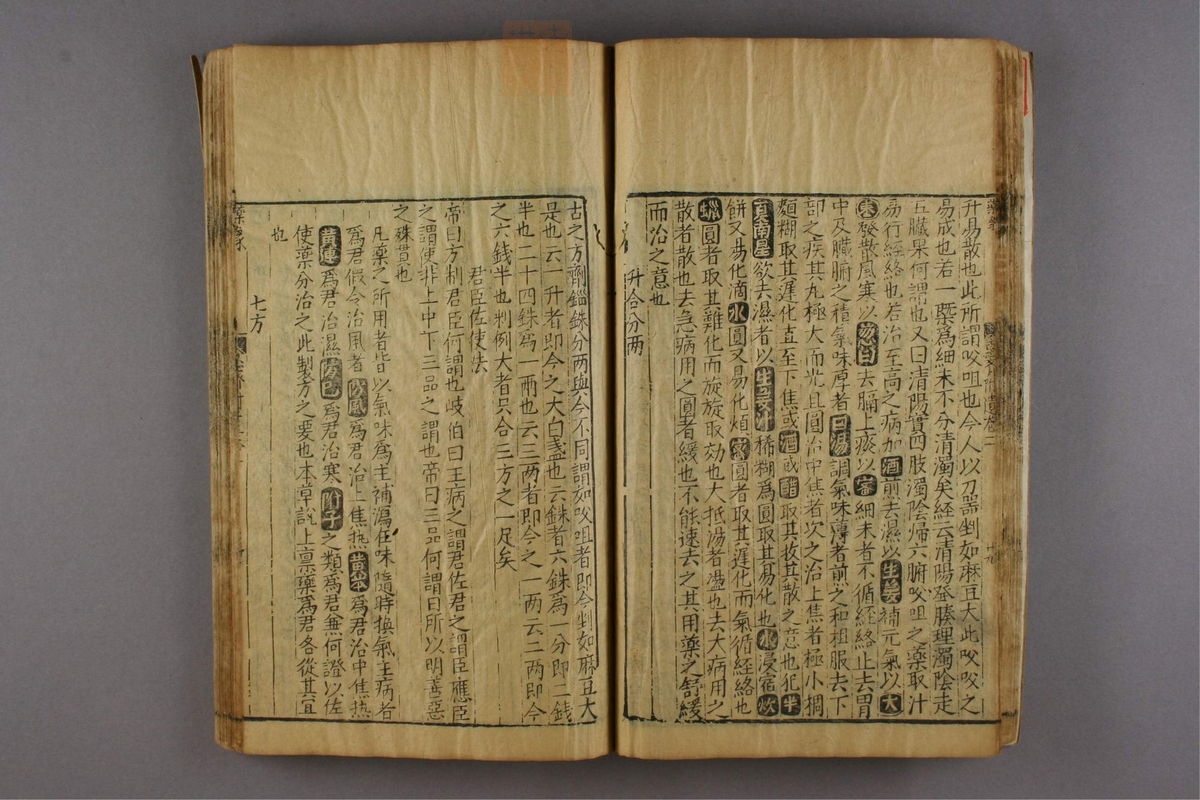 升易散也此所謂㕮咀也今人以刀器剉如麻豆大此㕮咀之
易成也若一槩爲細末不分清濁矣経云清陽發腠理濁陰走
五臟果何謂也又曰清陽實四肢濁陰歸六腑㕮咀之藥取汁
易行経絡也若治至高之病加酒煎去濕以生姜補元氣以大
棗發散風寒以葱白去膈上痰以蜜細末者不循経絡止去胃
中及臟腑之積氣味厚者白湯調氣味薄者煎之和柤服去下
部之疾其丸極大而光且圓治中焦者次之治上焦者極小稠
麪糊取其遲化直至下焦或酒或醋取其收其散之意也犯半
夏南星欲去濕者以生姜汁稀糊爲圓取其易化也水浸宿炊
餅又易化滴水圓又易化煉蜜圓者取其遲化而氣循経絡也
蠟圓者取其難化而旋旋取効也大抵湯者盪也去大病用之
散者散也去急病用之圓者緩也不能速去之其用藥之舒緩
而治之意也
升合分两
古之方劑錙銖分两與今不同謂如㕮咀者即今剉如麻豆大
是也云一升者即今之大白盞也云銖者六銖爲一分即二錢
半也二十四銖爲一兩也云三两者即今之一两云二两即今
之六錢半也料例大者只合三方之一足矣
君臣佐使法
帝曰方制君臣何謂也岐伯曰主病之謂君佐君之謂臣應臣
之謂使非上中下三品之謂也帝曰三品何謂曰所以明善惡
之殊貫也
凡藥之所用者皆以氣味爲主補瀉在味隨時換氣主病者
爲君假令治風者防風爲君治上焦熱黄芩爲君治中焦熱
黄連爲君治濕防已爲君治寒附子之類爲君兼何證以佐
使藥分治之此製方之要也本草說上禀藥爲君各從其宜
也
七方